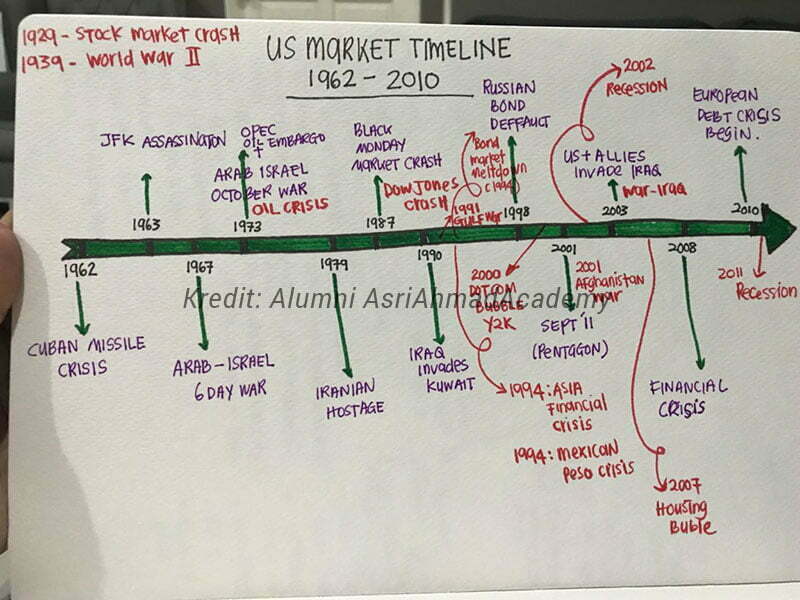 1929 - STOCK MARKET CRASH
1939 - WORLD WAR II
US MARKET TIMELINE
1962 - 2010
JFK ASSASSINATION
1963
OPEC
OIL EMBARGO
+
ARAB ISRAEL
OCTOBER WAR
OIL CRISIS
1973
BLACK
MONDAY
MARKET CRASH
DOW JONES
CRASH
1987
Bond
market
meltdown
(1994)
1991
GULF WAR
RUSSIAN
BOND
DEFFAULT
1998
2002
RECESSION
US + ALLIES
INVADE IRAQ
WAR-IRAQ
2003
EUROPEAN
DEBT CRISIS
BEGIN.
2010
1962
CUBAN MISSILE
CRISIS
1967
ARAB-ISRAEL
6 DAY WAR
1979
IRANIAN
HOSTAGE
1990
IRAQ
invades
KUWAIT
2000
DOTCOM
BUBBLE
Y2K
1994: ASIA
Financial
crisis
1994: MEXICAN
Peso CRISIS
2001
2001
Afghanistan
war
SEPT 11
(PENTAGON)
2008
FINANCIAL
CRISIS
2007
Housing
Buble
2011
Recession
Kredit: Alumni AsriAhmadAcademy